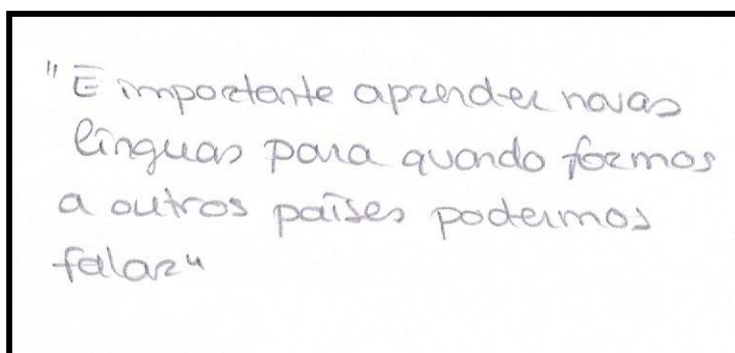 "É importante aprender novas
línguas para quando formos
a outros países podermos
falar"